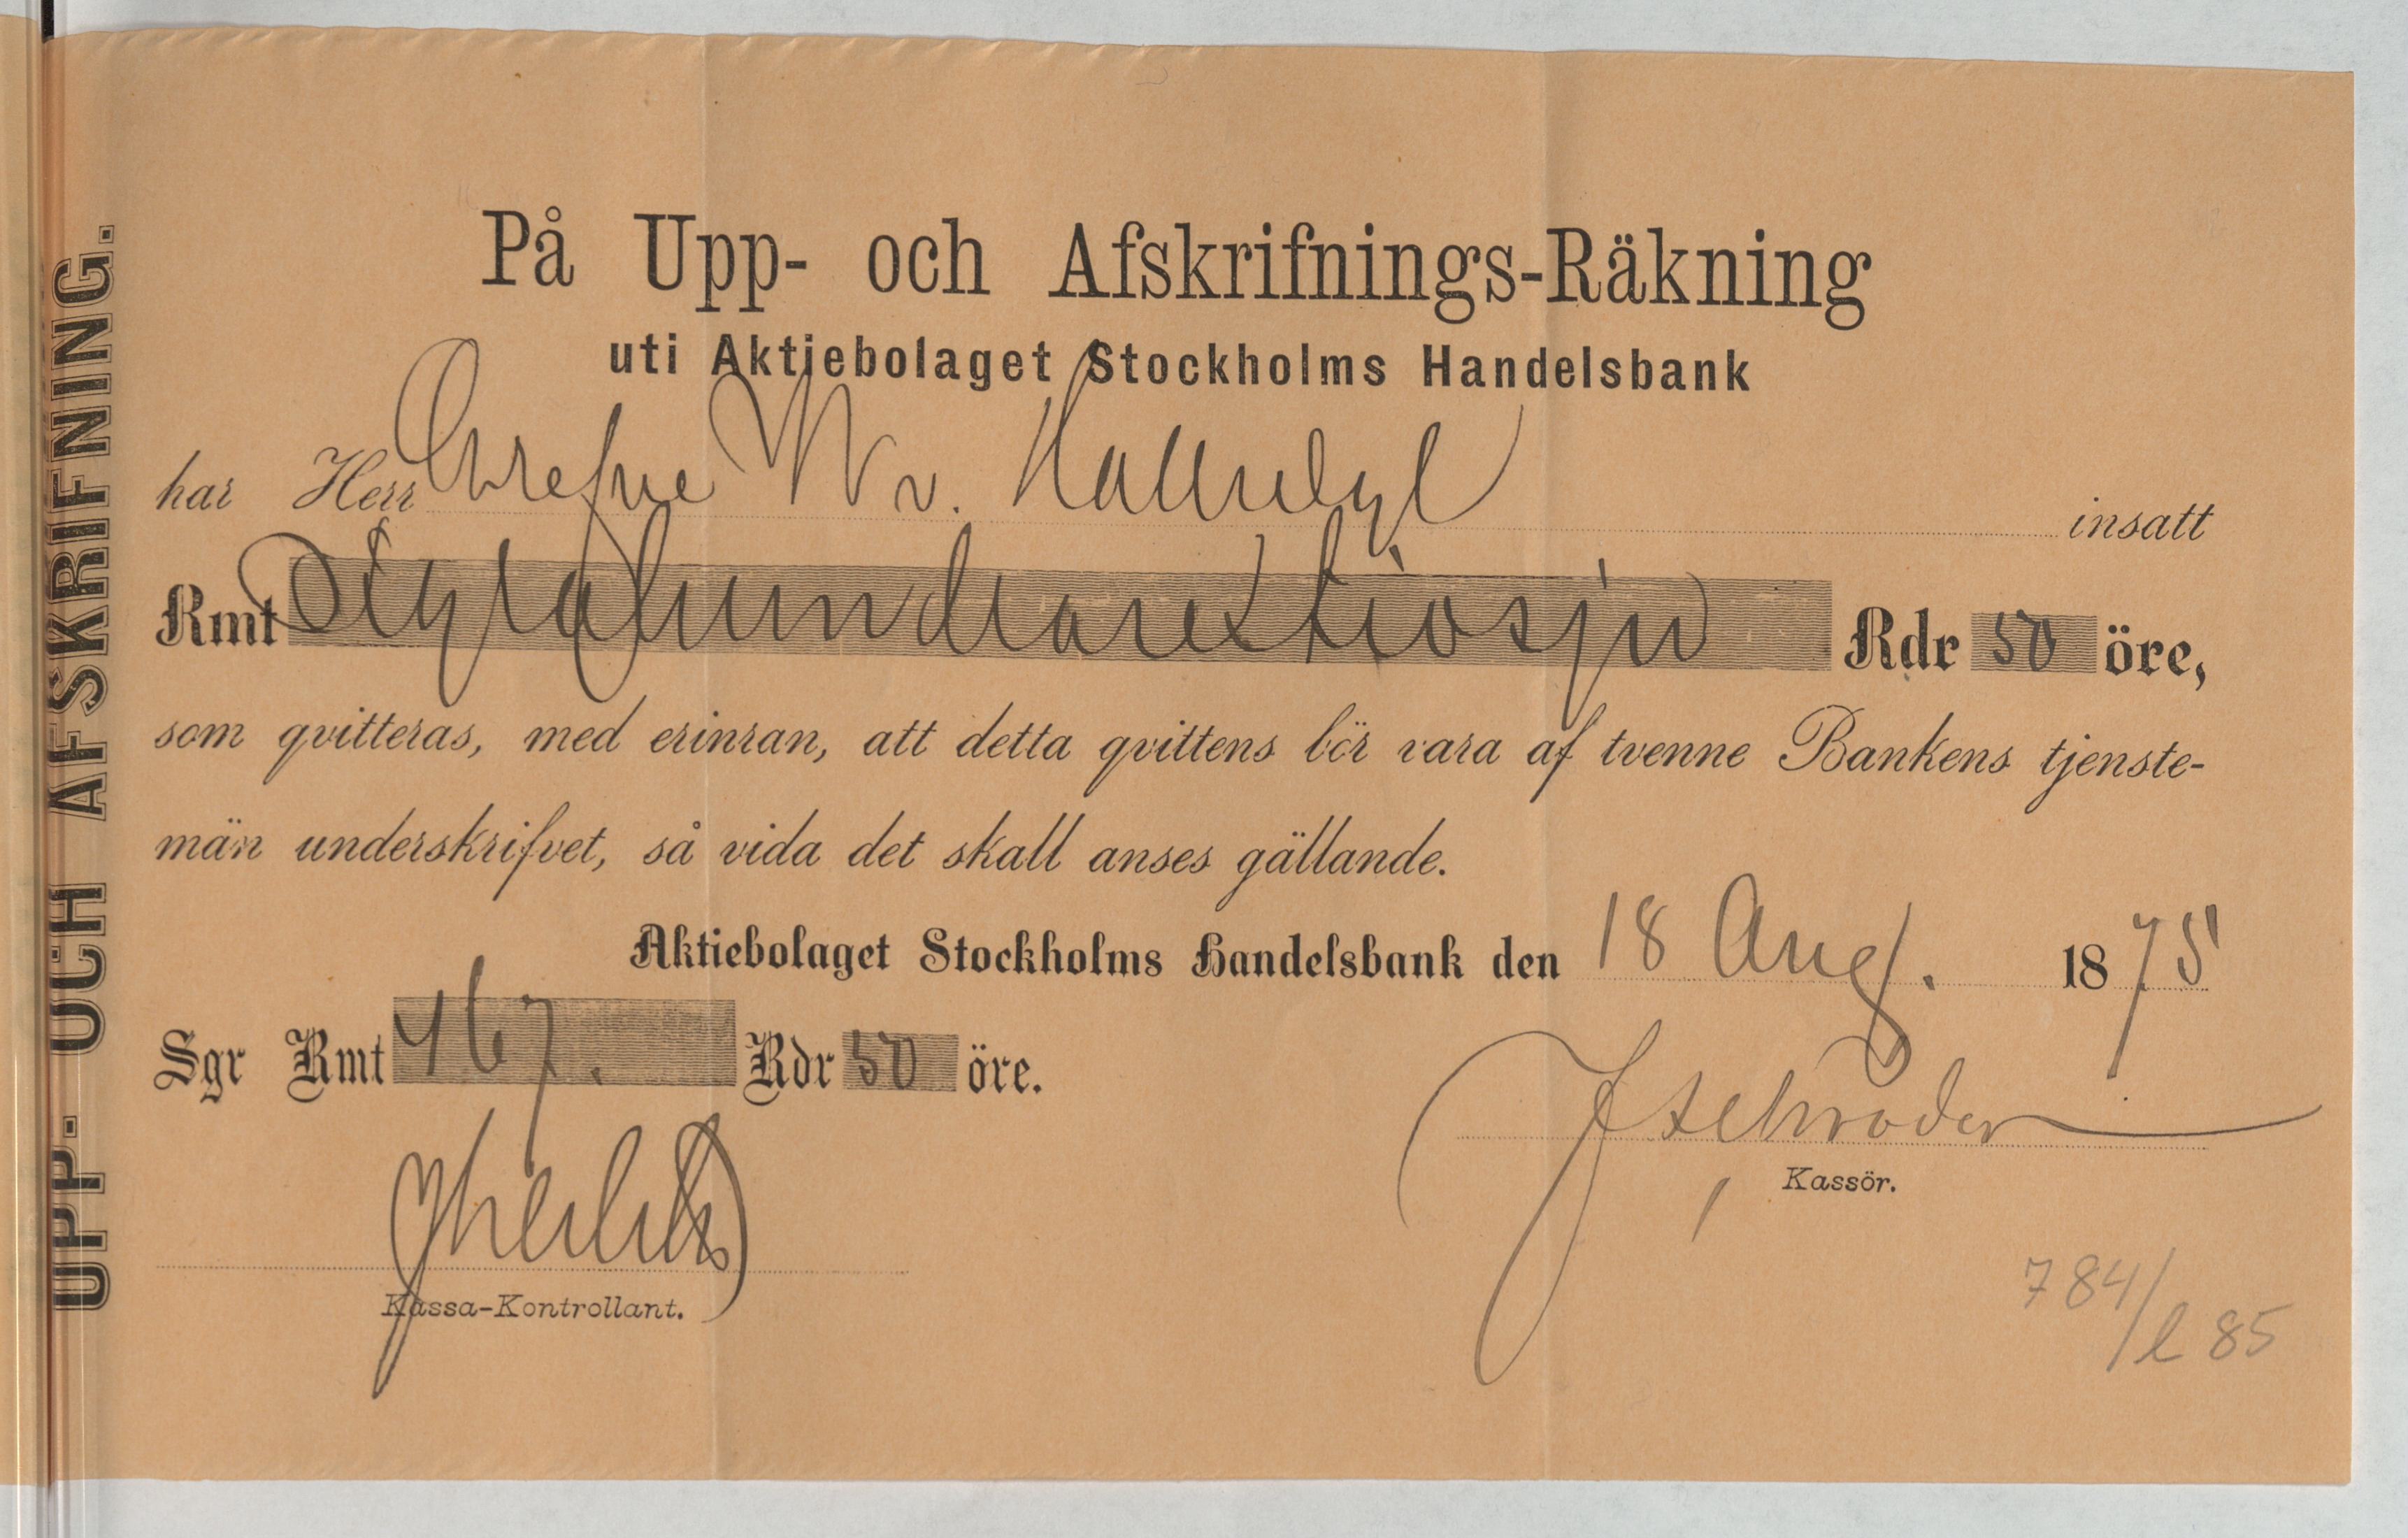 UPP- OCH AFSKRIFNING.
På Upp- och Afskrifnings-Räkning
uti Aktiebolaget Stockholms Handelsbank
har Herr Grefve W v. Hallwyl insatt
Rmt Fyrahundrasextiosju Rdr 50 öre,
som qvitteras, med erinran, att detta qvittens bör vara af tvenne Bankens tjenste-
män underskrifvet, så vida det skall anses gällande.
Aktiebolaget Stockholms Handelsbank den 18 Aug. 1875
Sgr Rmt 467. Rdr 50 öre.
Schröder
Kassör.
Kassa-Kontrollant.
784/l 85